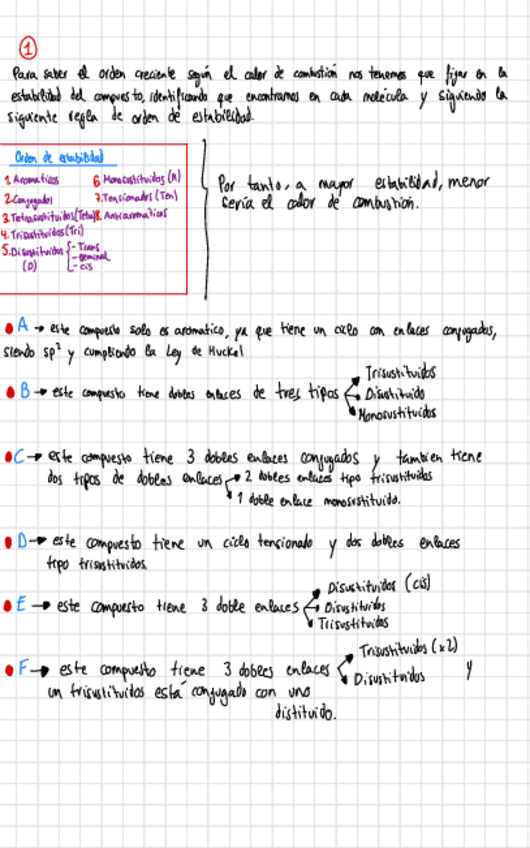 1
Para saber el orden creciente según el calor de combustión nos tenemos que fijar en la
estabilidad del compuesto, identificando que encontramos en cada molécula y siguiendo la
siguiente regla de orden de estabilidad.
Orden de estabilidad
1. Aromaticos
2. Conjugados
3. Tetrasustituidos (Tetra)
4. Trisustituidos (Tri)
5. Disustituidos (D) { - Trans
- geminal
- cis
6. Monosustituidos (M)
7. Tensionados (Ten)
8. Antiaromaticos
Por tanto, a mayor estabilidad, menor
sería el calor de combustión.
A → este compuesto solo es aromatico, ya que tiene un ciclo con enlaces conjugados,
siendo sp² y cumpliendo la Ley de Huckel
B → este compuesto tiene dobles enlaces de tres tipos
Trisustituidos
Disustituido
Monosustituidos
C → este compuesto tiene 3 dobles enlaces conjugados y tambien tiene
dos tipos de dobles enlaces → 2 dobles enlaces tipo trisustituidos
1 doble enlace monosustituido.
D → este compuesto tiene un ciclo tensionado y dos dobles enlaces
tipo trisustituidos.
E → este compuesto tiene 3 doble enlaces
Disustituidos (cis)
Disustituidos
Trisustituidos
F → este compuesto tiene 3 dobles enlaces
Trisustituidos (x2)
Disustituidos y
un trisustituidos está conjugado con uno
distituido.